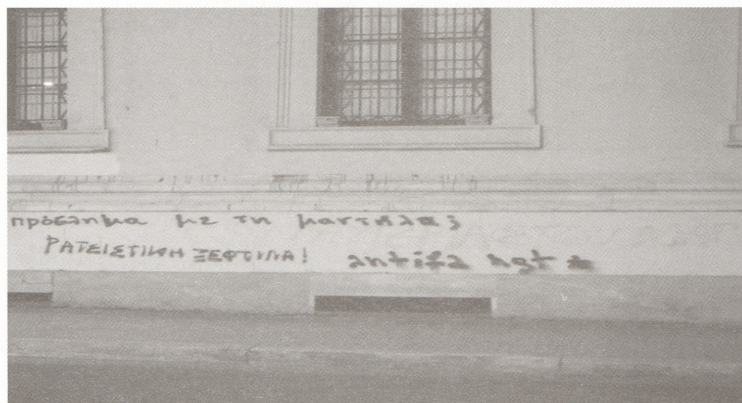 πρόβλημα με τη μαντήλα;
ΡΑΤΣΙΣΤΙΚΗ ΞΕΦΤΙΛΑ! antifa